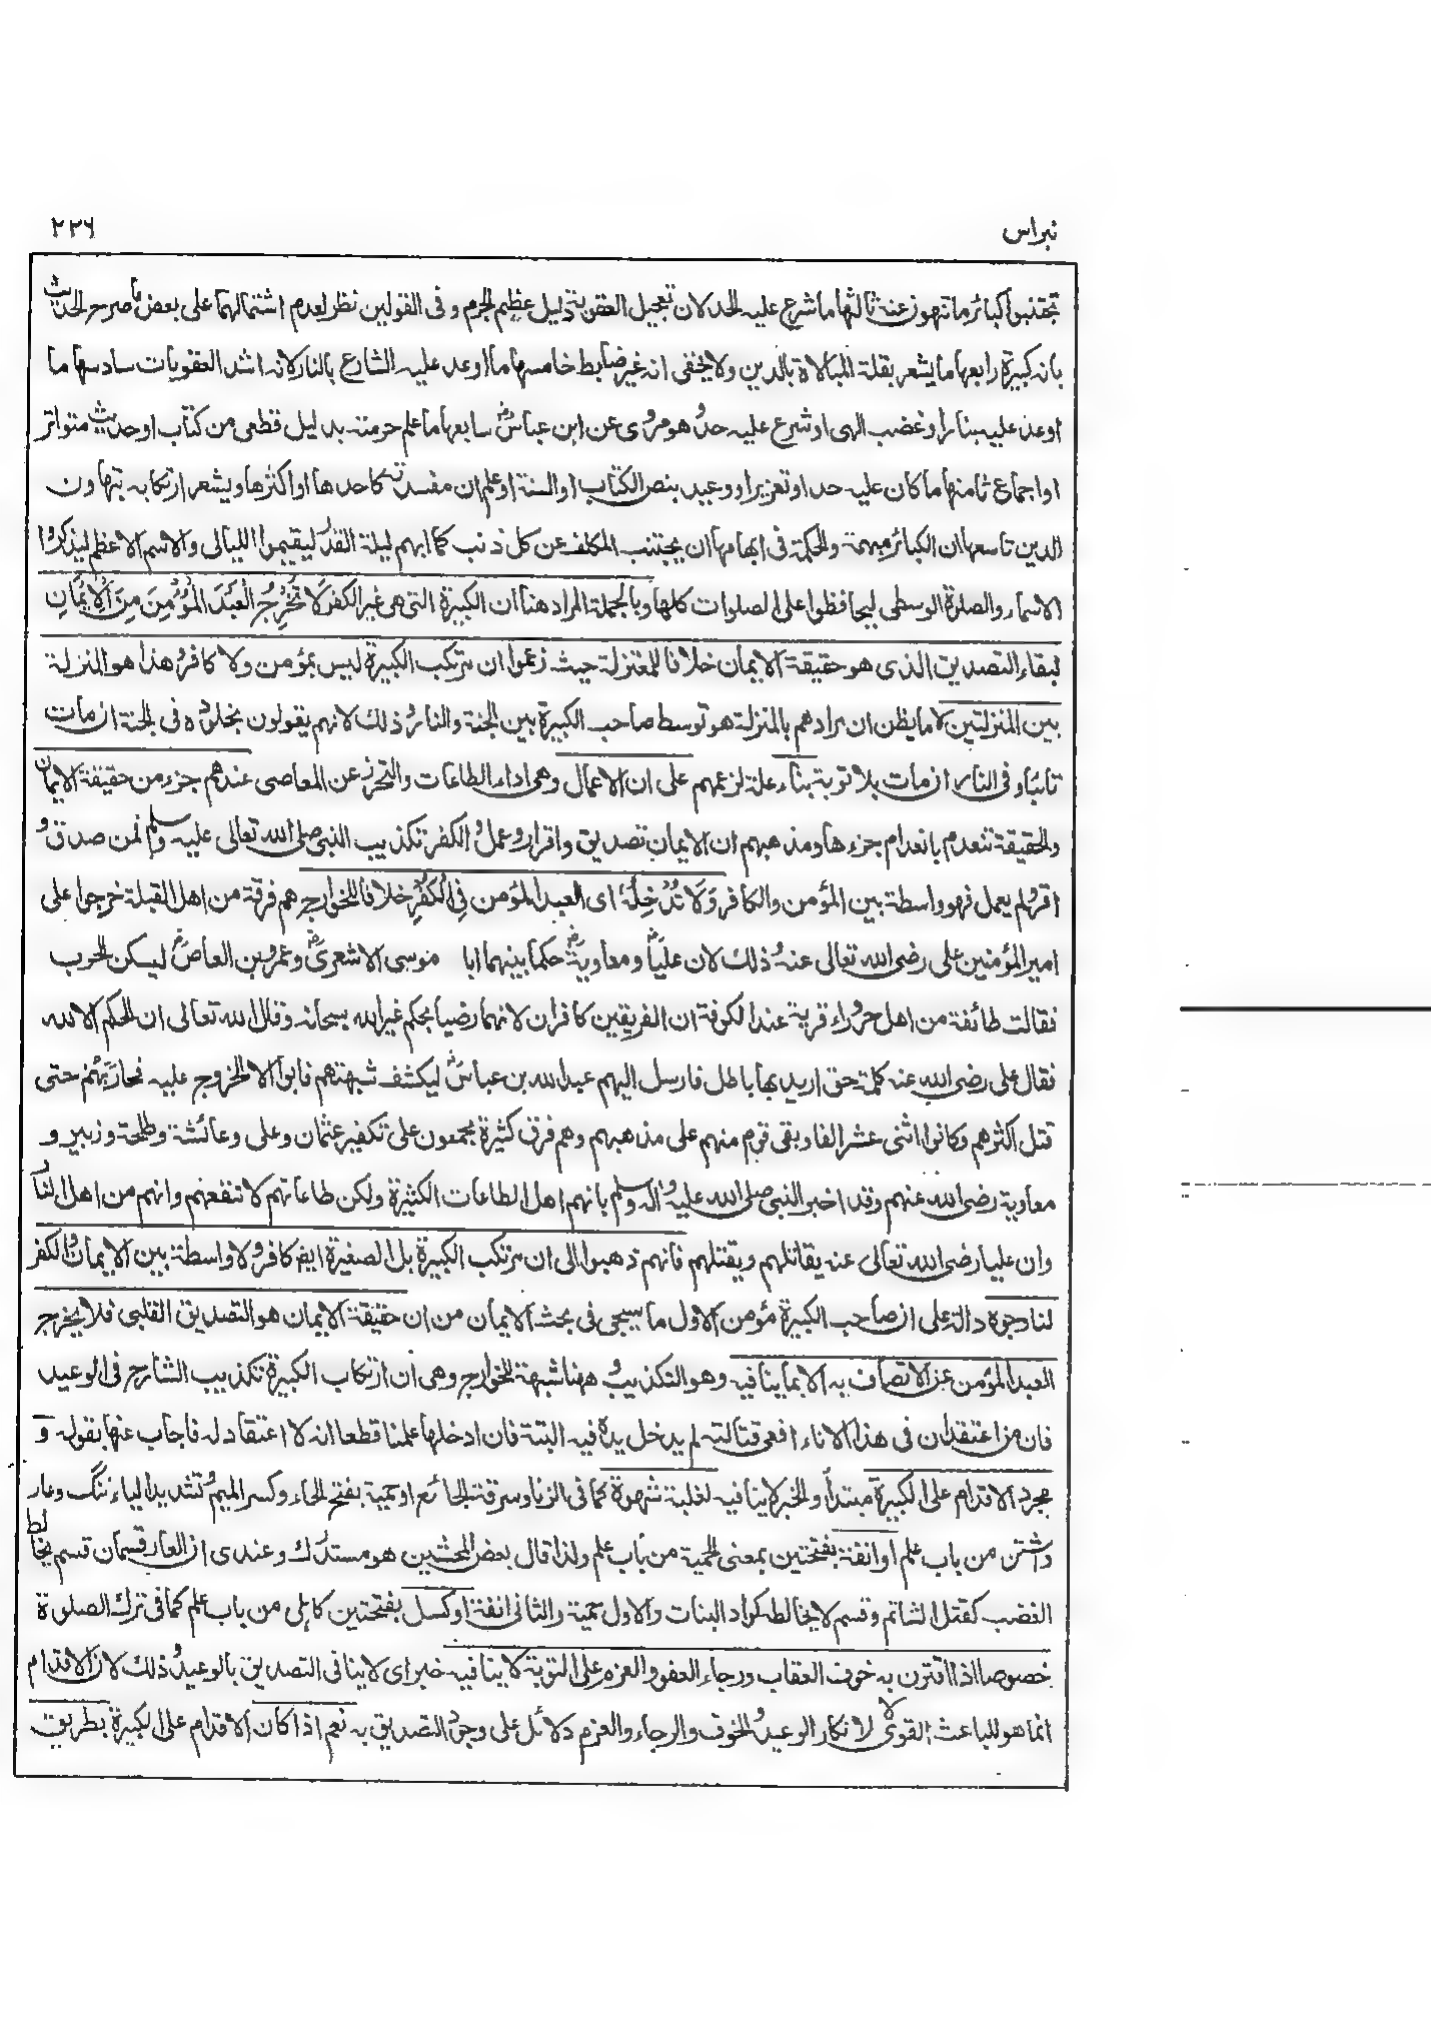 نبراس
٢٢٦
تجتنبوا كبائر ما تنهون عنه ثالثها ما شرع عليه الحد لان تعجيل العقوبة دليل عظيم الجرم وفى القولين نظر لعدم اشتمالهما على بعض ما صرح الحديث
بانه كبيرة رابعها ما يشعر بقلة المبالاة بالدين ولا يخفى انه غير ضابط خامسها ما اوعد عليه الشارع بالنار لانه اشد العقوبات سادسها ما
اوعد عليه بنار او غضب الهى او شرع عليه حد وهو مروى عن ابن عباسؓ سابعها ما علم حرمته بدليل قطعى من كتاب او حديث متواتر
او اجماع ثامنها ما كان عليه حد او تعزير او وعيد بنص الكتاب او السنة او علم ان مفسدته كاحدها او اكثرها ويشعر ارتكابه بتهاون
الدين تاسعها ان الكبائر مبهمة والحكمة فى ابهامها ان يجتنب المكلف عن كل ذنب كما ابهم ليلة القدر ليقيموا الليالى والاسم الاعظم ليذكروا
الاسماء والصلوة الوسطى ليحافظوا على الصلوات كلها وبالجملة المراد هنا ان الكبيرة التى هى غير الكفر لَا تُخْرِجُ الْعَبْدَ الْمُؤْمِنَ مِنَ الْاِيْمَانِ
لبقاء التصديق الذى هو حقيقة الايمان خلافا للمعتزلة حيث زعموا ان مرتكب الكبيرة ليس بمؤمن ولا كافر وهذا هو المنزلة
بين المنزلتين لا ما يظن ان مرادهم بالمنزلة هو توسط صاحب الكبيرة بين الجنة والنار وذلك لانهم يقولون بخلوده فى الجنة ان مات
تائبا وفى النار ان مات بلا توبة بناء علة لزعمهم على ان الاعمال وهى اداء الطاعات والتحرز عن المعاصى عندهم جزء من حقيقة الايمان
والحقيقة تنعدم بانعدام جزءها ومذهبهم ان الايمان تصديق واقرار وعمل والكفر تكذيب النبى صلى الله تعالى عليه وسلم فمن صدق و
اقر ولم يعمل فهو واسطة بين المؤمن والكافر وَلَا تُدْخِلُهٗ اى العبد المؤمن فِى الْكُفْرِ خلافا للخوارج هم فرقة من اهل القبلة خرجوا على
امير المؤمنين على رضى الله تعالى عنه وذلك لان علياؓ ومعاويةؓ حكما بينهما ابا موسى الاشعرىؓ وعمرو بن العاصؓ ليسكن الحرب
فقالت طائفة من اهل حروراء قرية عند الكوفة ان الفريقين كافران لانهما رضيا بحكم غير الله سبحانه وقال الله تعالى ان الحكم الا لله
فقال على رضى الله عنه كلمة حق اريد بها باطل فارسل اليهم عبد الله بن عباسؓ ليكشف شبهتهم فابوا الا الخروج عليه فحاربهم حتى
قتل اكثرهم وكانوا اثنى عشر الفا وبقى قوم منهم على مذهبهم وهم فرق كثيرة يجمعون على تكفير عثمان وعلى وعائشة وطلحة وزبير و
معاوية رضى الله عنهم وقد اخبر النبى صلى الله عليه واله وسلم بانهم اهل الطاعات الكثيرة ولكن طاعاتهم لا تنفعهم وانهم من اهل النار
وان عليا رضى الله تعالى عنه يقاتلهم ويقتلهم فانهم ذهبوا الى ان مرتكب الكبيرة بل الصغيرة ايضا كافر ولا واسطة بين الايمان والكفر
لنا وجوه دالة على ان صاحب الكبيرة مؤمن الاول ما سيجئ فى بحث الايمان من ان حقيقة الايمان هو التصديق القلبى فلا يخرج
العبد المؤمن عن الاتصاف به الا بما ينافيه وهو التكذيب وههنا شبهة للخوارج وهى ان ارتكاب الكبيرة تكذيب الشارح فى الوعيد
فان من اعتقد ان فى هذا الاناء افعى قتالة لم يدخل يده فيه البتة فان ادخلها علمنا قطعا انه لا اعتقاد له فاجاب عنها بقوله و
مجرد الاقدام على الكبيرة مبتدأ والخبر لا ينافيه لغلبة شهوة كما فى الزنا وسرقة الجائع او حمية بفتح الحاء وكسر الميم وتشديد الياء ننگ وعار
داشتن من باب علم او انفة بفتحتين بمعنى الحمية من باب علم ولذا قال بعض المحشين هو مستدرك وعندى ان العار قسمان قسم يخالط
الغضب كقتل الشاتم وقسم لا يخالطه كوأد البنات والاول حمية والثانى انفة او كسل بفتحتين كاہلى من باب علم كما فى ترك الصلوة
خصوصا اذا اقترن به خوف العقاب ورجاء العفو والعزم على التوبة لا ينافيه خبر اى لا ينافى التصديق بالوعيد وذلك لان الاقدام
انما هو للباعث القوى لا لانكار الوعيد والخوف والرجاء والعزم دلائل على وجود التصديق به نعم اذا كان الاقدام على الكبيرة بطريق